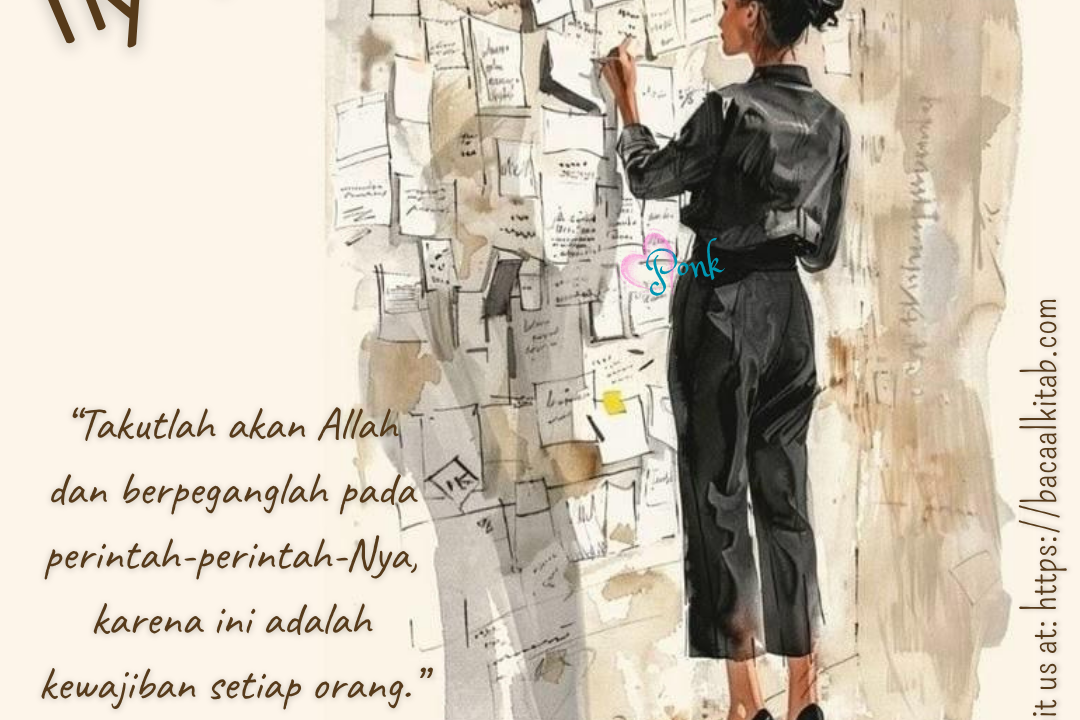 ny
“Takutlah akan Allah
dan berpeganglah pada
perintah-perintah-Nya,
karena ini adalah
kewajiban setiap orang.”
Ponk
it us at: https://bacaalkitab.com